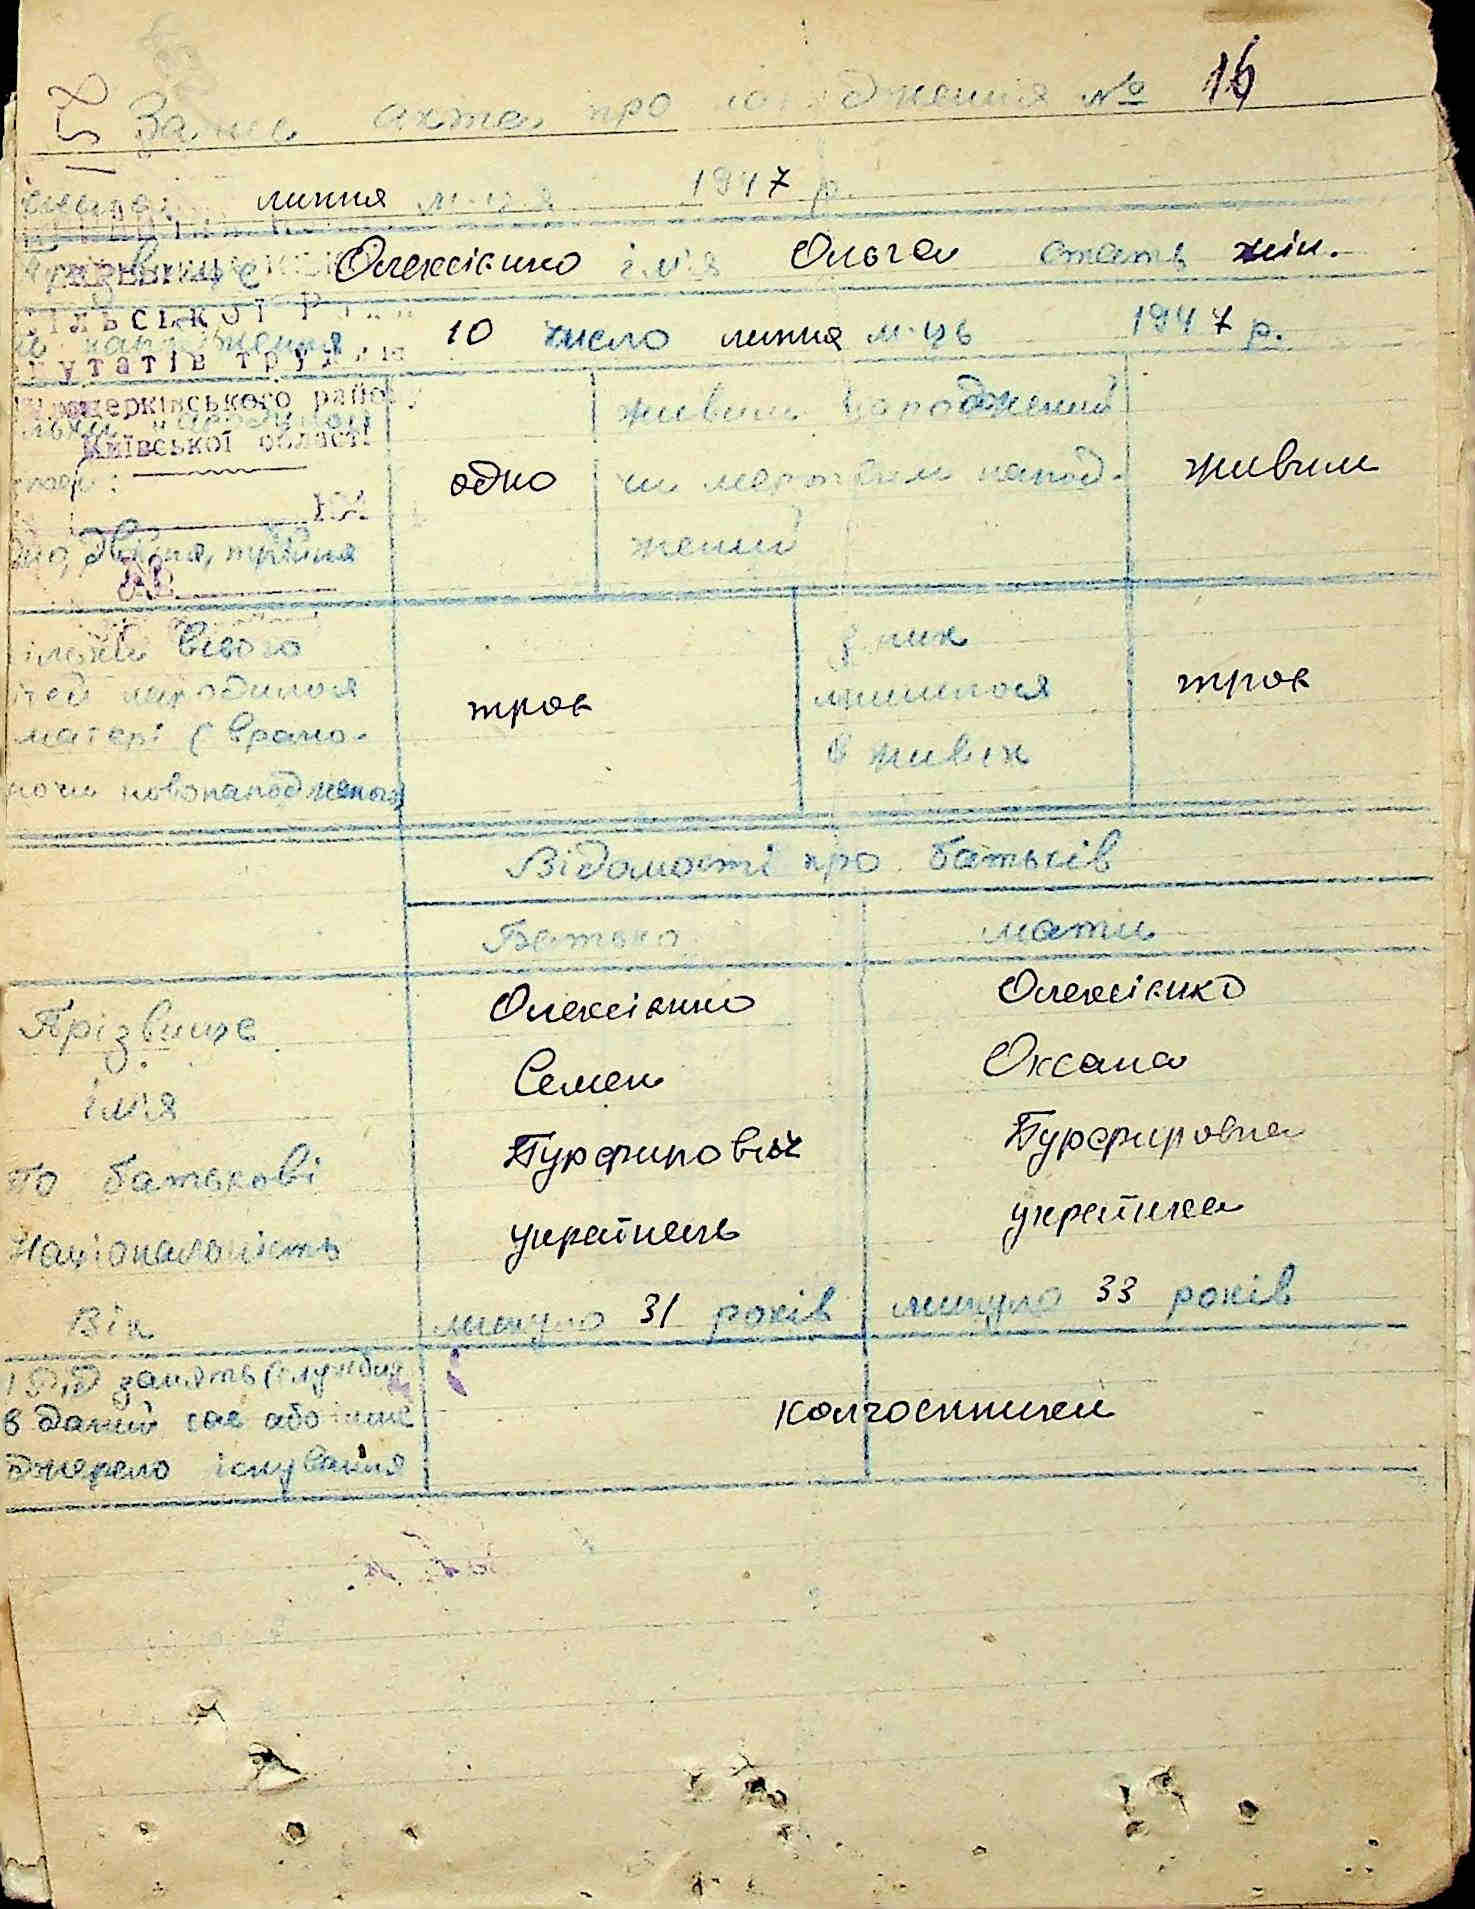 Запис акта про народження № 16
липня м-ця 1947 р.
Прізвище Олексієнко ім'я Ольга стать жін.
сільської Ради
народження 10 число липня м-ць 1947 р.
депутатів труд
Білоцерківського райо
Київської області
живим народжений
чи мертвим народ-
жений
одно
живим
194
двійня, трійня
№
всього
дітей народилося
матері (врахо-
ночи новонародженого
троє
з них
лишилося
в живих
троє
Відомості про батьків
Батько мати
Прізвище Олексієнко Олексієнко
ім'я Семен Оксана
по батькові Пурфирович Пурфировна
Національність українець українка
Вік минуло 31 років минуло 33 років
Рід занять (служби
в даний час або інше
джерело існування
колгоспники